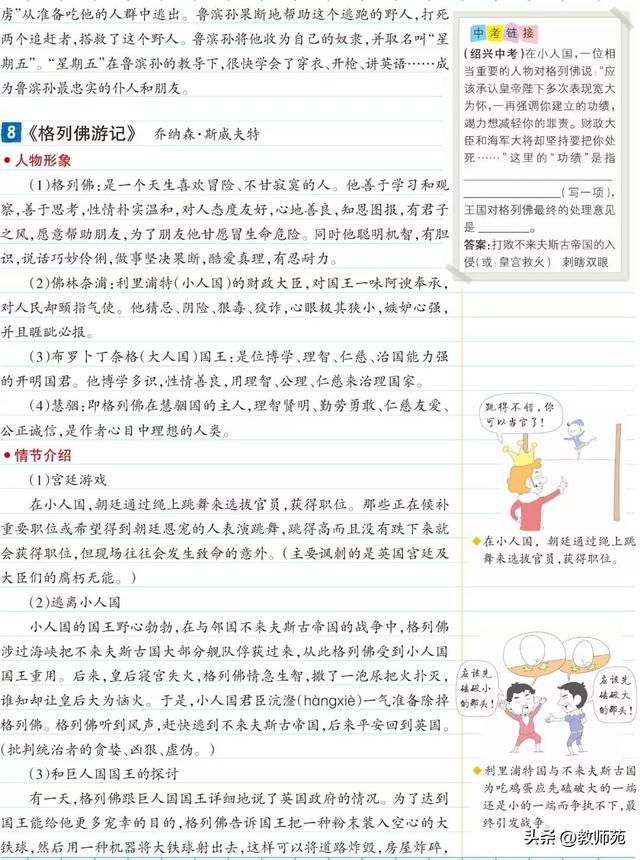 房”从准备吃他的人群中逃出。鲁滨孙果断地帮助这个逃跑的野人，打死
两个追赶者，搭救了这个野人。鲁滨孙将他收为自己的奴隶，并取名叫“星
期五”。“星期五”在鲁滨孙的教导下，很快学会了穿衣、开枪、讲英语……成
为鲁滨孙最忠实的仆人和朋友。
8《格列佛游记》 乔纳森·斯威夫特
•人物形象
(1)格列佛：是一个天生喜欢冒险、不甘寂寞的人。他善于学习和观
察，善于思考，性情朴实温和，对人态度友好，心地善良，知恩图报，有君子
之风，愿意帮助朋友，为了朋友他甘愿冒生命危险。同时他聪明机智，有胆
识，说话巧妙伶俐，做事坚决果断，酷爱真理，有忍耐力。
(2)佛林奈浦：利里浦特(小人国)的财政大臣，对国王一味阿谀奉承，
对人民却颐指气使。他猜忌、阴险、狠毒、狡诈，心眼极其狭小，嫉妒心强，
并且睚眦必报。
(3)布罗卜丁奈格(大人国)国王：是位博学、理智、仁慈、治国能力强
的开明国君。他博学多识，性情善良，用理智、公理、仁慈来治理国家。
(4)慧骃：即格列佛在慧骃国的主人，理智贤明、勤劳勇敢、仁慈友爱、
公正诚信，是作者心目中理想的人类。
•情节介绍
(1)宫廷游戏
在小人国，朝廷通过绳上跳舞来选拔官员，获得职位。那些正在候补
重要职位或希望得到朝廷恩宠的人表演跳舞，跳得高而且没有跌下来就
会获得职位，但现场往往会发生致命的意外。(主要讽刺的是英国宫廷及
大臣们的腐朽无能。)
(2)逃离小人国
小人国的国王野心勃勃，在与邻国不来夫斯古帝国的战争中，格列佛
涉过海峡把不来夫斯古国大部分舰队俘获过来，从此格列佛受到小人国
国王重用。后来，皇后寝宫失火，格列佛情急生智，撒了一泡尿把火扑灭，
谁知却让皇后大为恼火。于是，小人国君臣沆瀣(hàngxiè)一气准备除掉
格列佛。格列佛听到风声，赶快逃到不来夫斯古帝国，后来平安回到英国。
(批判统治者的贪婪、凶狠、虚伪。)
(3)和巨人国国王的探讨
有一天，格列佛跟巨人国国王详细地说了英国政府的情况。为了达到
国王能给他更多宠幸的目的，格列佛告诉国王把一种粉末装入空心的大
铁球，然后用一种机器将大铁球射出去，这样可以将道路炸毁，房屋炸碎，
中考链接
(绍兴中考)在小人国，一位相
当重要的人物对格列佛说：“应
该承认皇帝陛下多次表现宽大
为怀，一再强调你建立的功绩，
竭力想减轻你的罪责。财政大
臣和海军大将却坚持要把你处
死……”这里的“功绩”是指
____________________
____________(写一项)，
王国对格列佛最终的处理意见
是________。
答案：打败不来夫斯古帝国的入
侵(或：皇宫救火) 刺瞎双眼
跳得不错，你
可以当官了！
◆在小人国，朝廷通过绳上跳
舞来选拔官员，获得职位。
应该先
磕破小
的那头！
应该先
磕破大
的那头！
◆利里浦特国与不来夫斯古国
为吃鸡蛋应先磕破大的一端
还是小的一端而争执不下，最
终引发战争。
头条 @教师苑